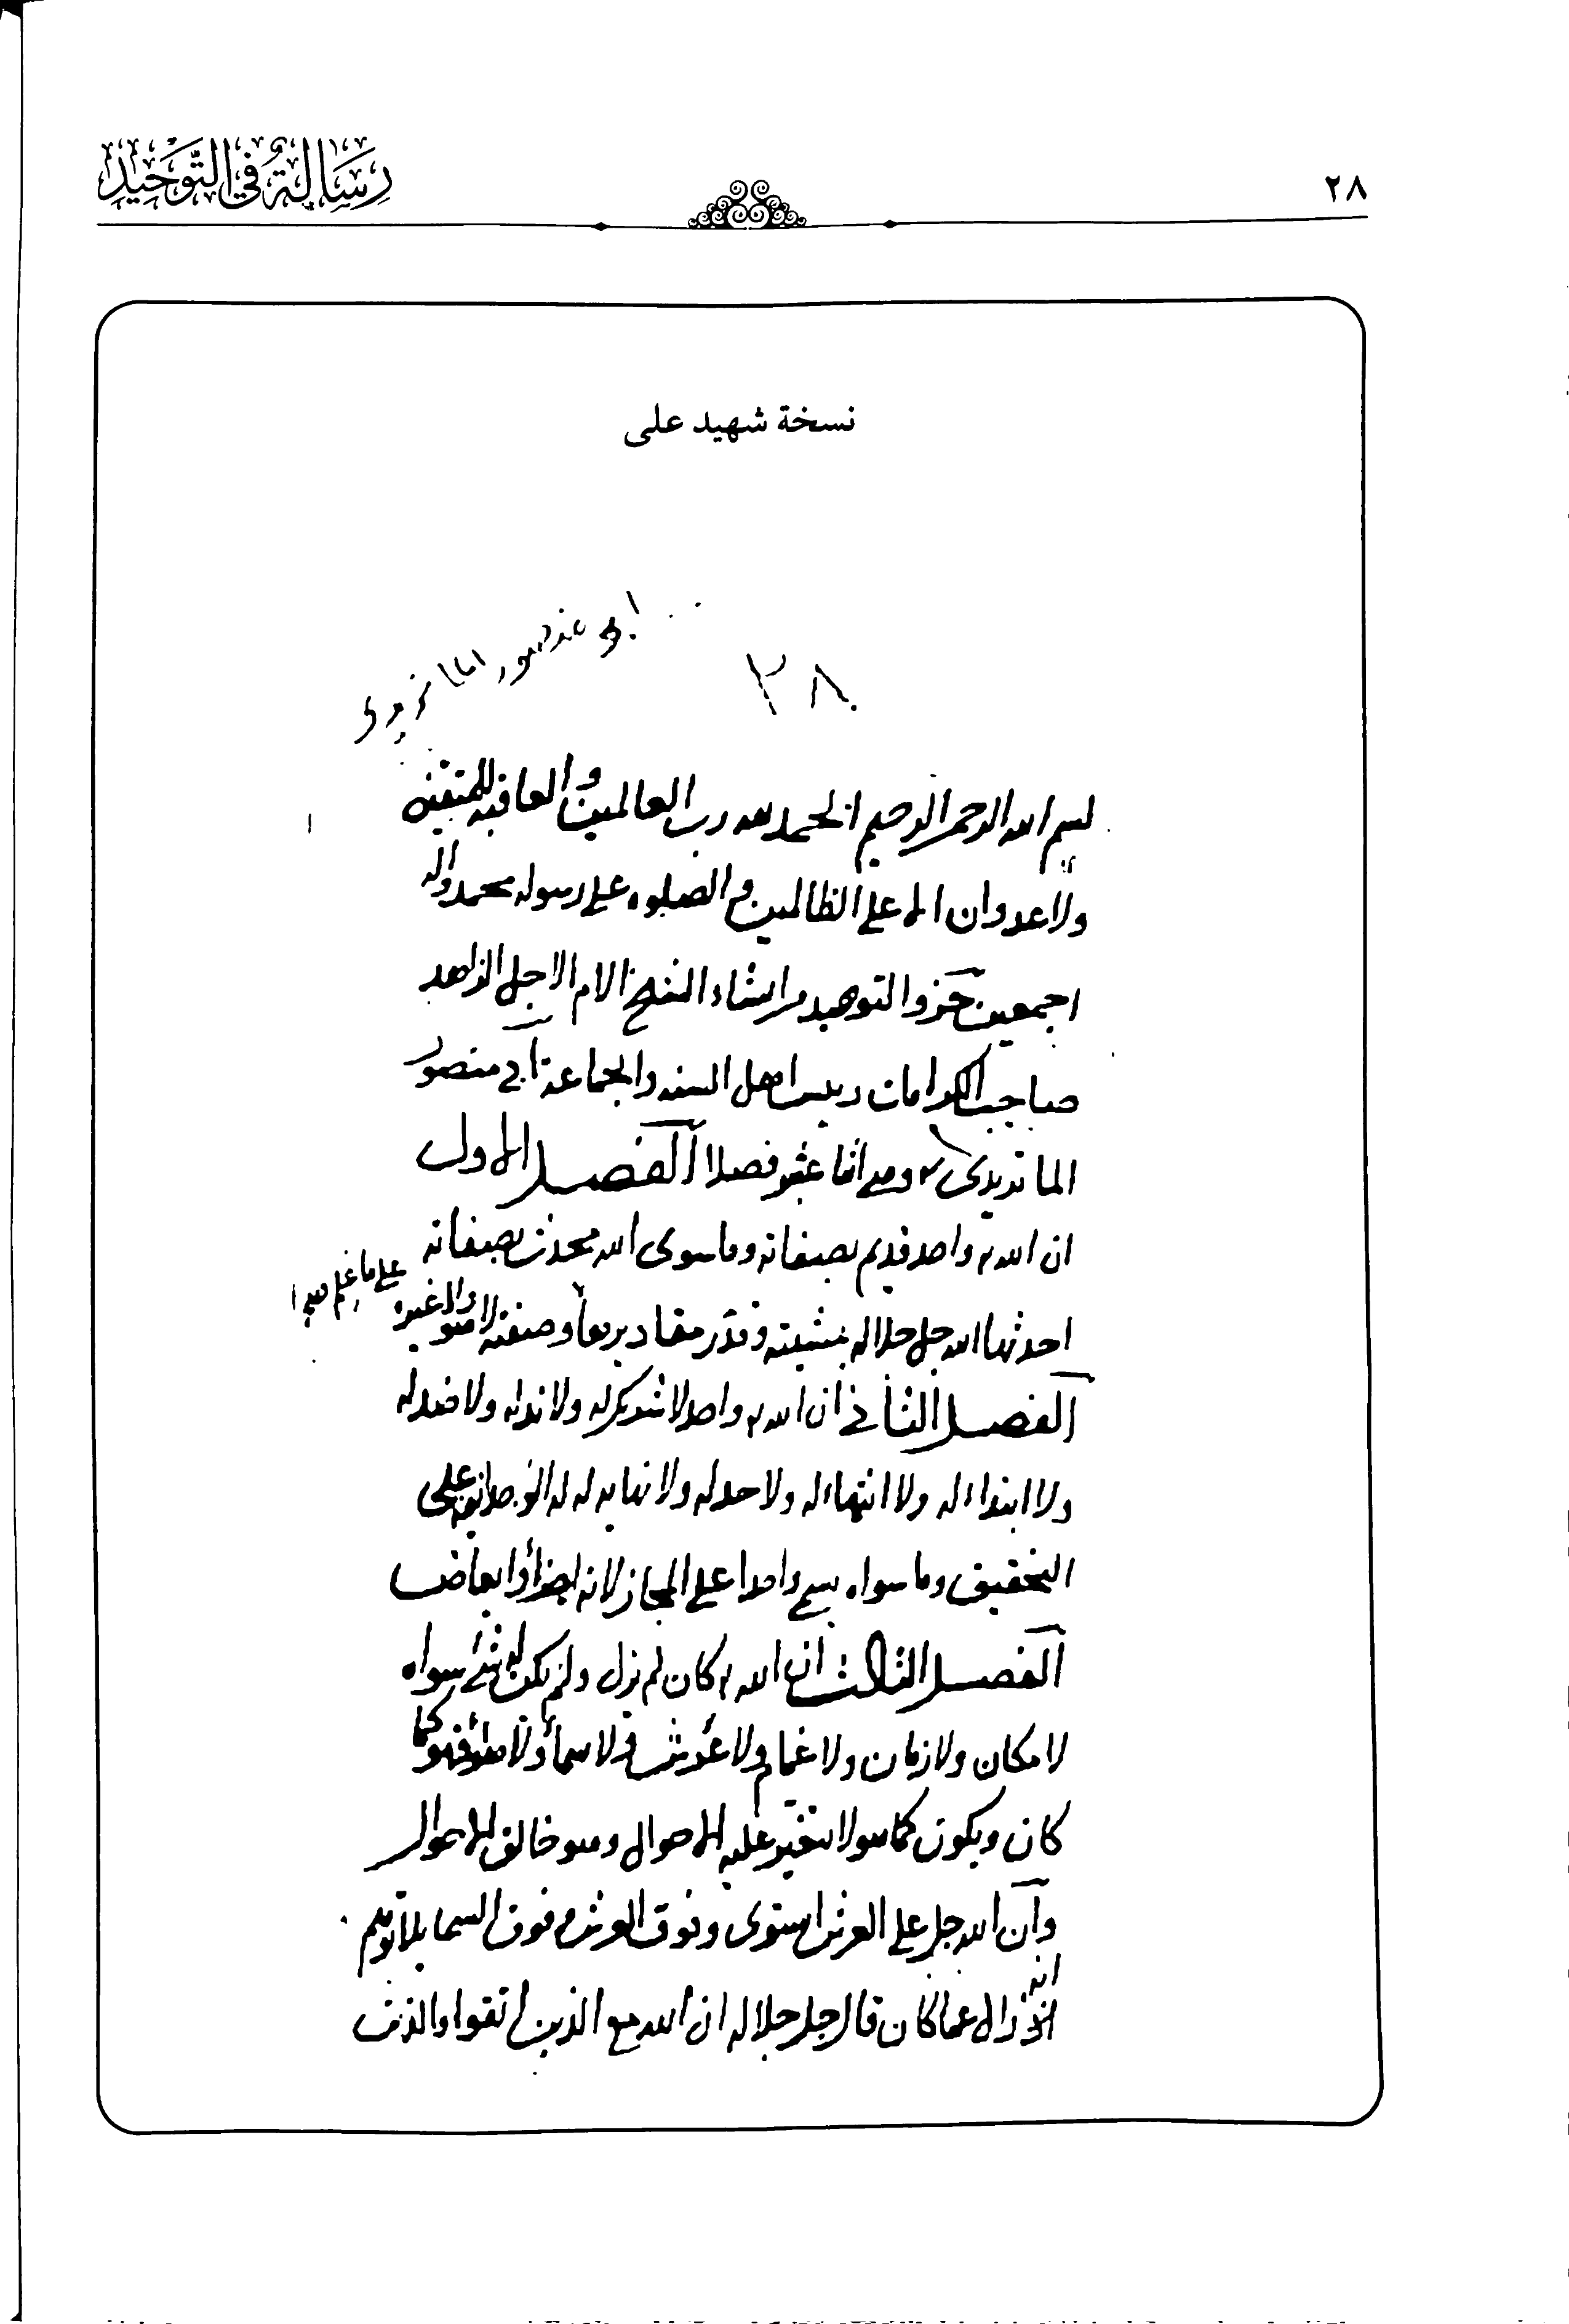 ٢٨
رِسَالَةٌ فِي التَّوْحِيْدِ
نسخة شهيد علی
ابو منصور الماتریدی
٢٨
بسم الله الرحمن الرحيم الحمد لله رب العالمين والعاقبه للمتقين
ولا عدوان الا على الظالمين والصلوه على رسوله محمد واله
اجمعين التوحيد من انشاء الشيخ الامام الاجل الزاهد
صاحب الكرامات رييس اهل السنه والجماعة ابي منصور
الماتريدي وهي اثنا عشر فصلا الفصل الاول
ان الله واحد قديم بصفاته وما سوى الله محدث بصفاته
احدثها الله جل جلاله بمشيته وقدر مقاديرها وصفته لا هو ولا غيره
على ما علم منها
الفصل الثاني ان الله واحد لا شريك له ولا ند له ولا ضد له
ولا ابتداء له ولا انتهاء له ولا حد له ولا نهايه له له الوحدانيه على
التحقيق وما سواه يسمى واحدا على المجاز لانه اجزاء وابعاض
الفصل الثالث ان الله كان لم يزل ولم يكن له شئ سواه
لا مكان ولا زمان ولا غمام ولا عرش ولا سماء ولا هواء فهو كما
كان ويكون كما هو لا يتغير عليه الاحوال وهو خالق الاحوال
وان الله جل على العرش استوى وفوق العرش وفوق السما بلا توهم
انه
زال عما كان قال جل جلاله ان الله مع الذين اتقوا والذين